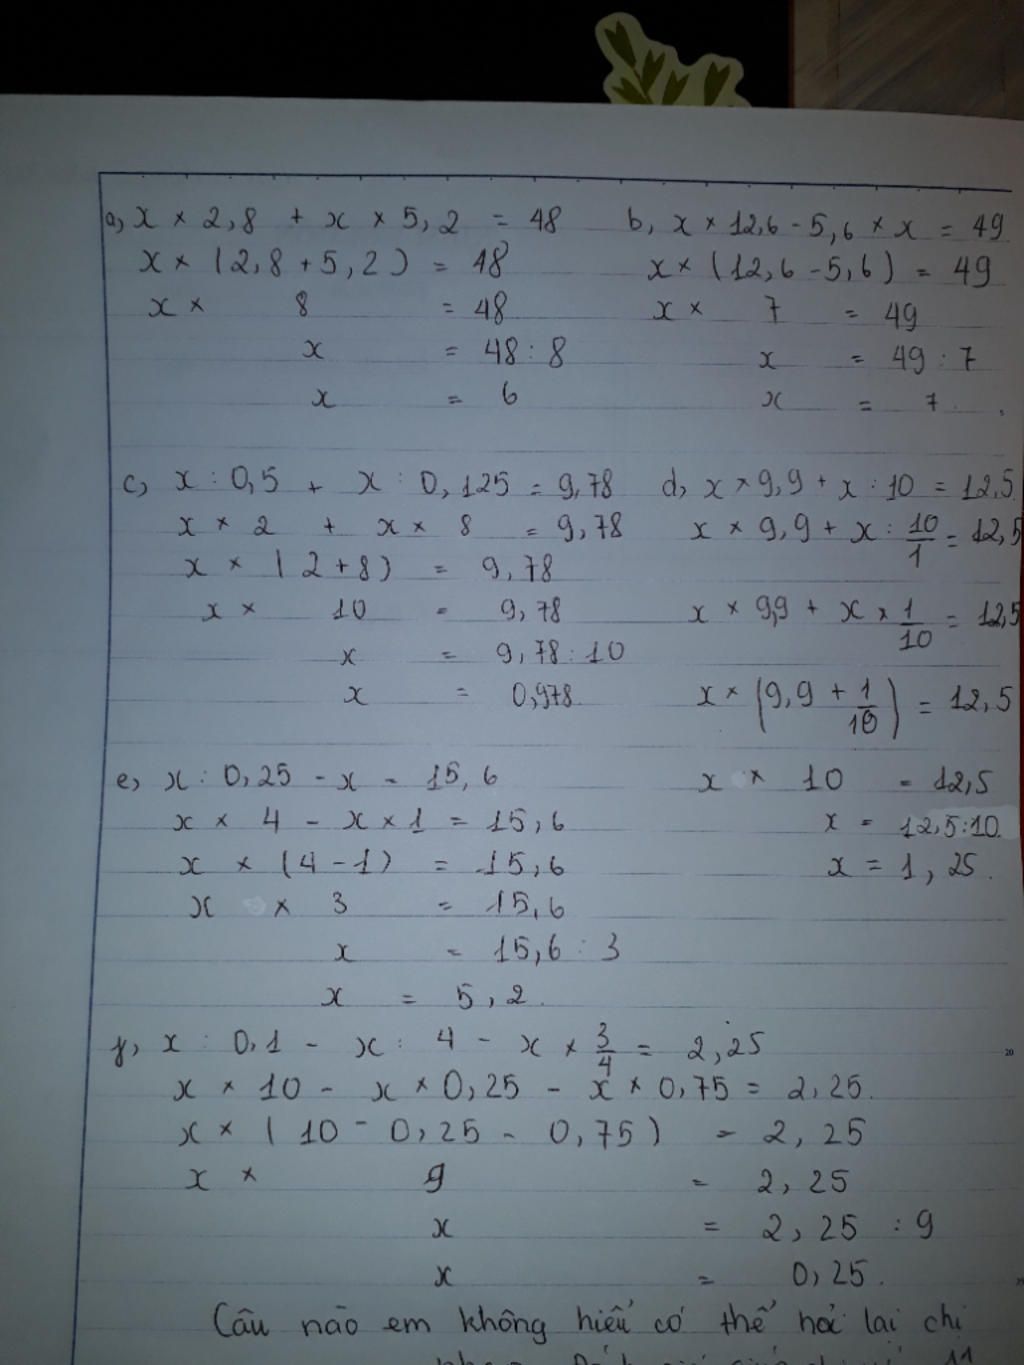 a, x × 2,8 + x × 5,2 = 48
x × (2,8 + 5,2) = 48
x × 8 = 48
x = 48 : 8
x = 6
b, x × 12,6 - 5,6 × x = 49
x × (12,6 - 5,6) = 49
x × 7 = 49
x = 49 : 7
x = 7.
c, x : 0,5 + x : 0,125 = 9,78
x × 2 + x × 8 = 9,78
x × (2+8) = 9,78
x × 10 = 9,78
x = 9,78 : 10
x = 0,978.
d, x × 9,9 + x : 10 = 12,5
x × 9,9 + x : 10/1 = 12,5
x × 9,9 + x × 1/10 = 12,5
x × (9,9 + 1/10) = 12,5
x × 10 = 12,5
x = 12,5:10.
x = 1,25.
e, x : 0,25 - x = 15,6
x × 4 - x × 1 = 15,6
x × (4-1) = 15,6
x × 3 = 15,6
x = 15,6 : 3
x = 5,2.
f, x : 0,1 - x : 4 - x × 3/4 = 2,25
x × 10 - x × 0,25 - x × 0,75 = 2,25.
x × (10 - 0,25 - 0,75) = 2,25
x × 9 = 2,25
x = 2,25 : 9
x = 0,25.
20
Câu nào em không hiểu có thể hỏi lại chị